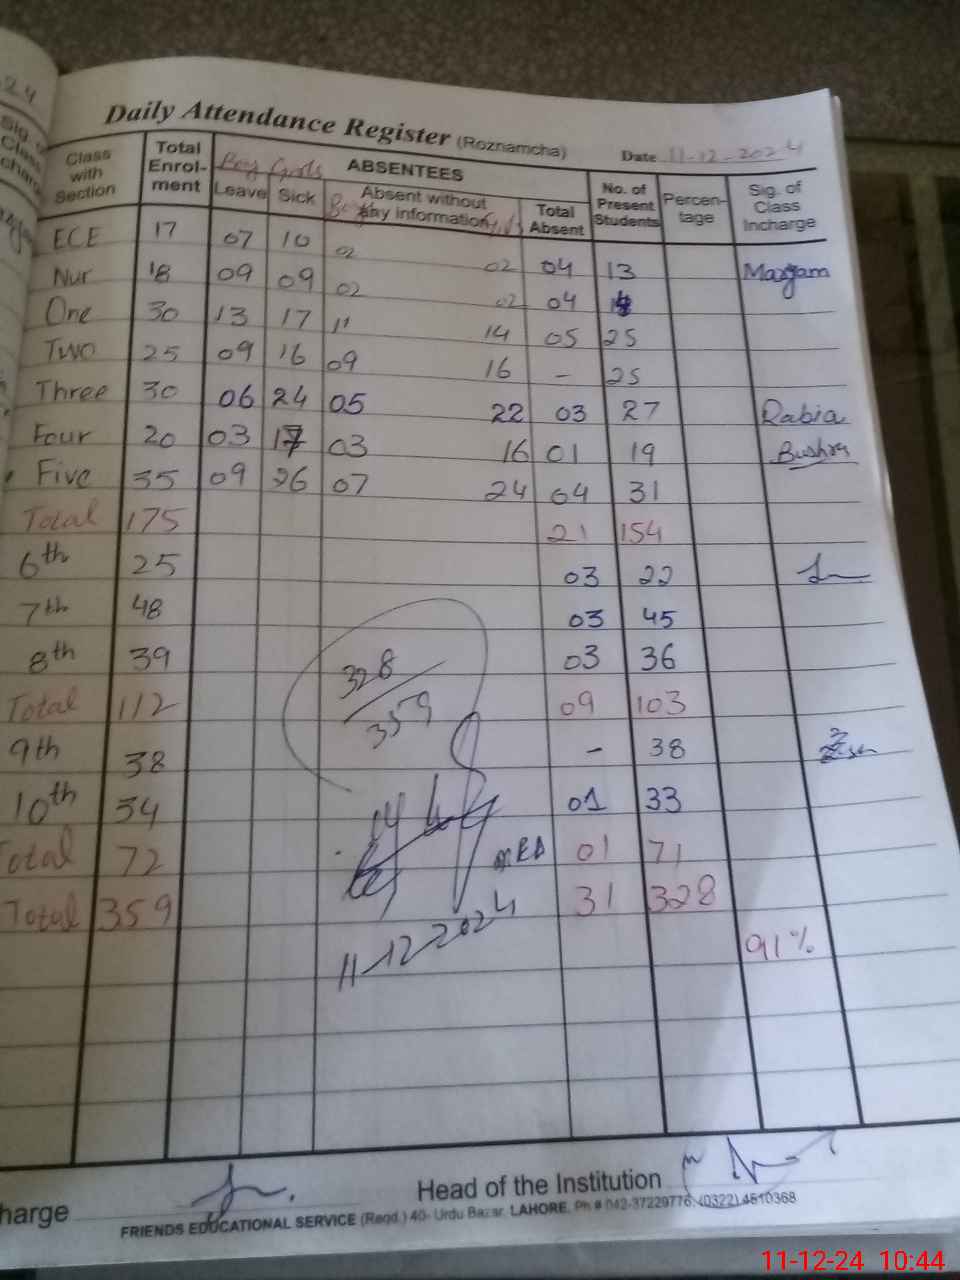 24
Daily Attendance Register (Roznamcha)
Date 11-12-2024
Class with Section
Total Enrol-ment
Boy Girls
ABSENTEES
Leave Sick
Absent without any information
Total Absent
No. of Present Students
Percen-tage
Sig. of Class Incharge
ECE 17 07 10 02 02 04 13 Maryam
Nur 18 09 09 02 02 04
One 30 13 17 11 14 05 25
Two 25 09 16 09 16 - 25
Three 30 06 24 05 22 03 27 Rabia
Four 20 03 17 03 16 01 19 Bushra
Five 35 09 26 07 24 04 31
Total 175 21 154
6th 25 03 22
7th 48 03 45
8th 39 03 36
328
359
Total 112 09 103
9th 38 - 38
10th 34 01 33
Total 72 01 71
Total 359 31 328
11-12-2024
91%
harge
Head of the Institution
FRIENDS EDUCATIONAL SERVICE (Regd.) 40- Urdu Bazar, LAHORE. Ph # 042-37229776, (0322) 4610368
11-12-24 10:44